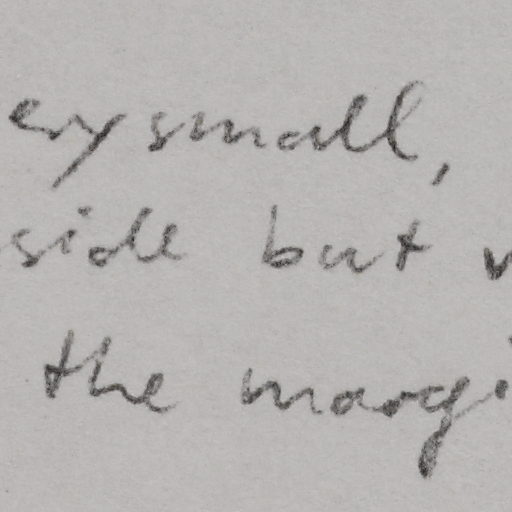 ery small,
side but
the margi